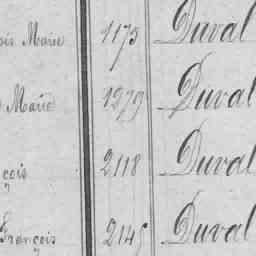 Marie 1173 Duval
Marie 1279 Duval
çois 2118 Duval
François 2145 Duval